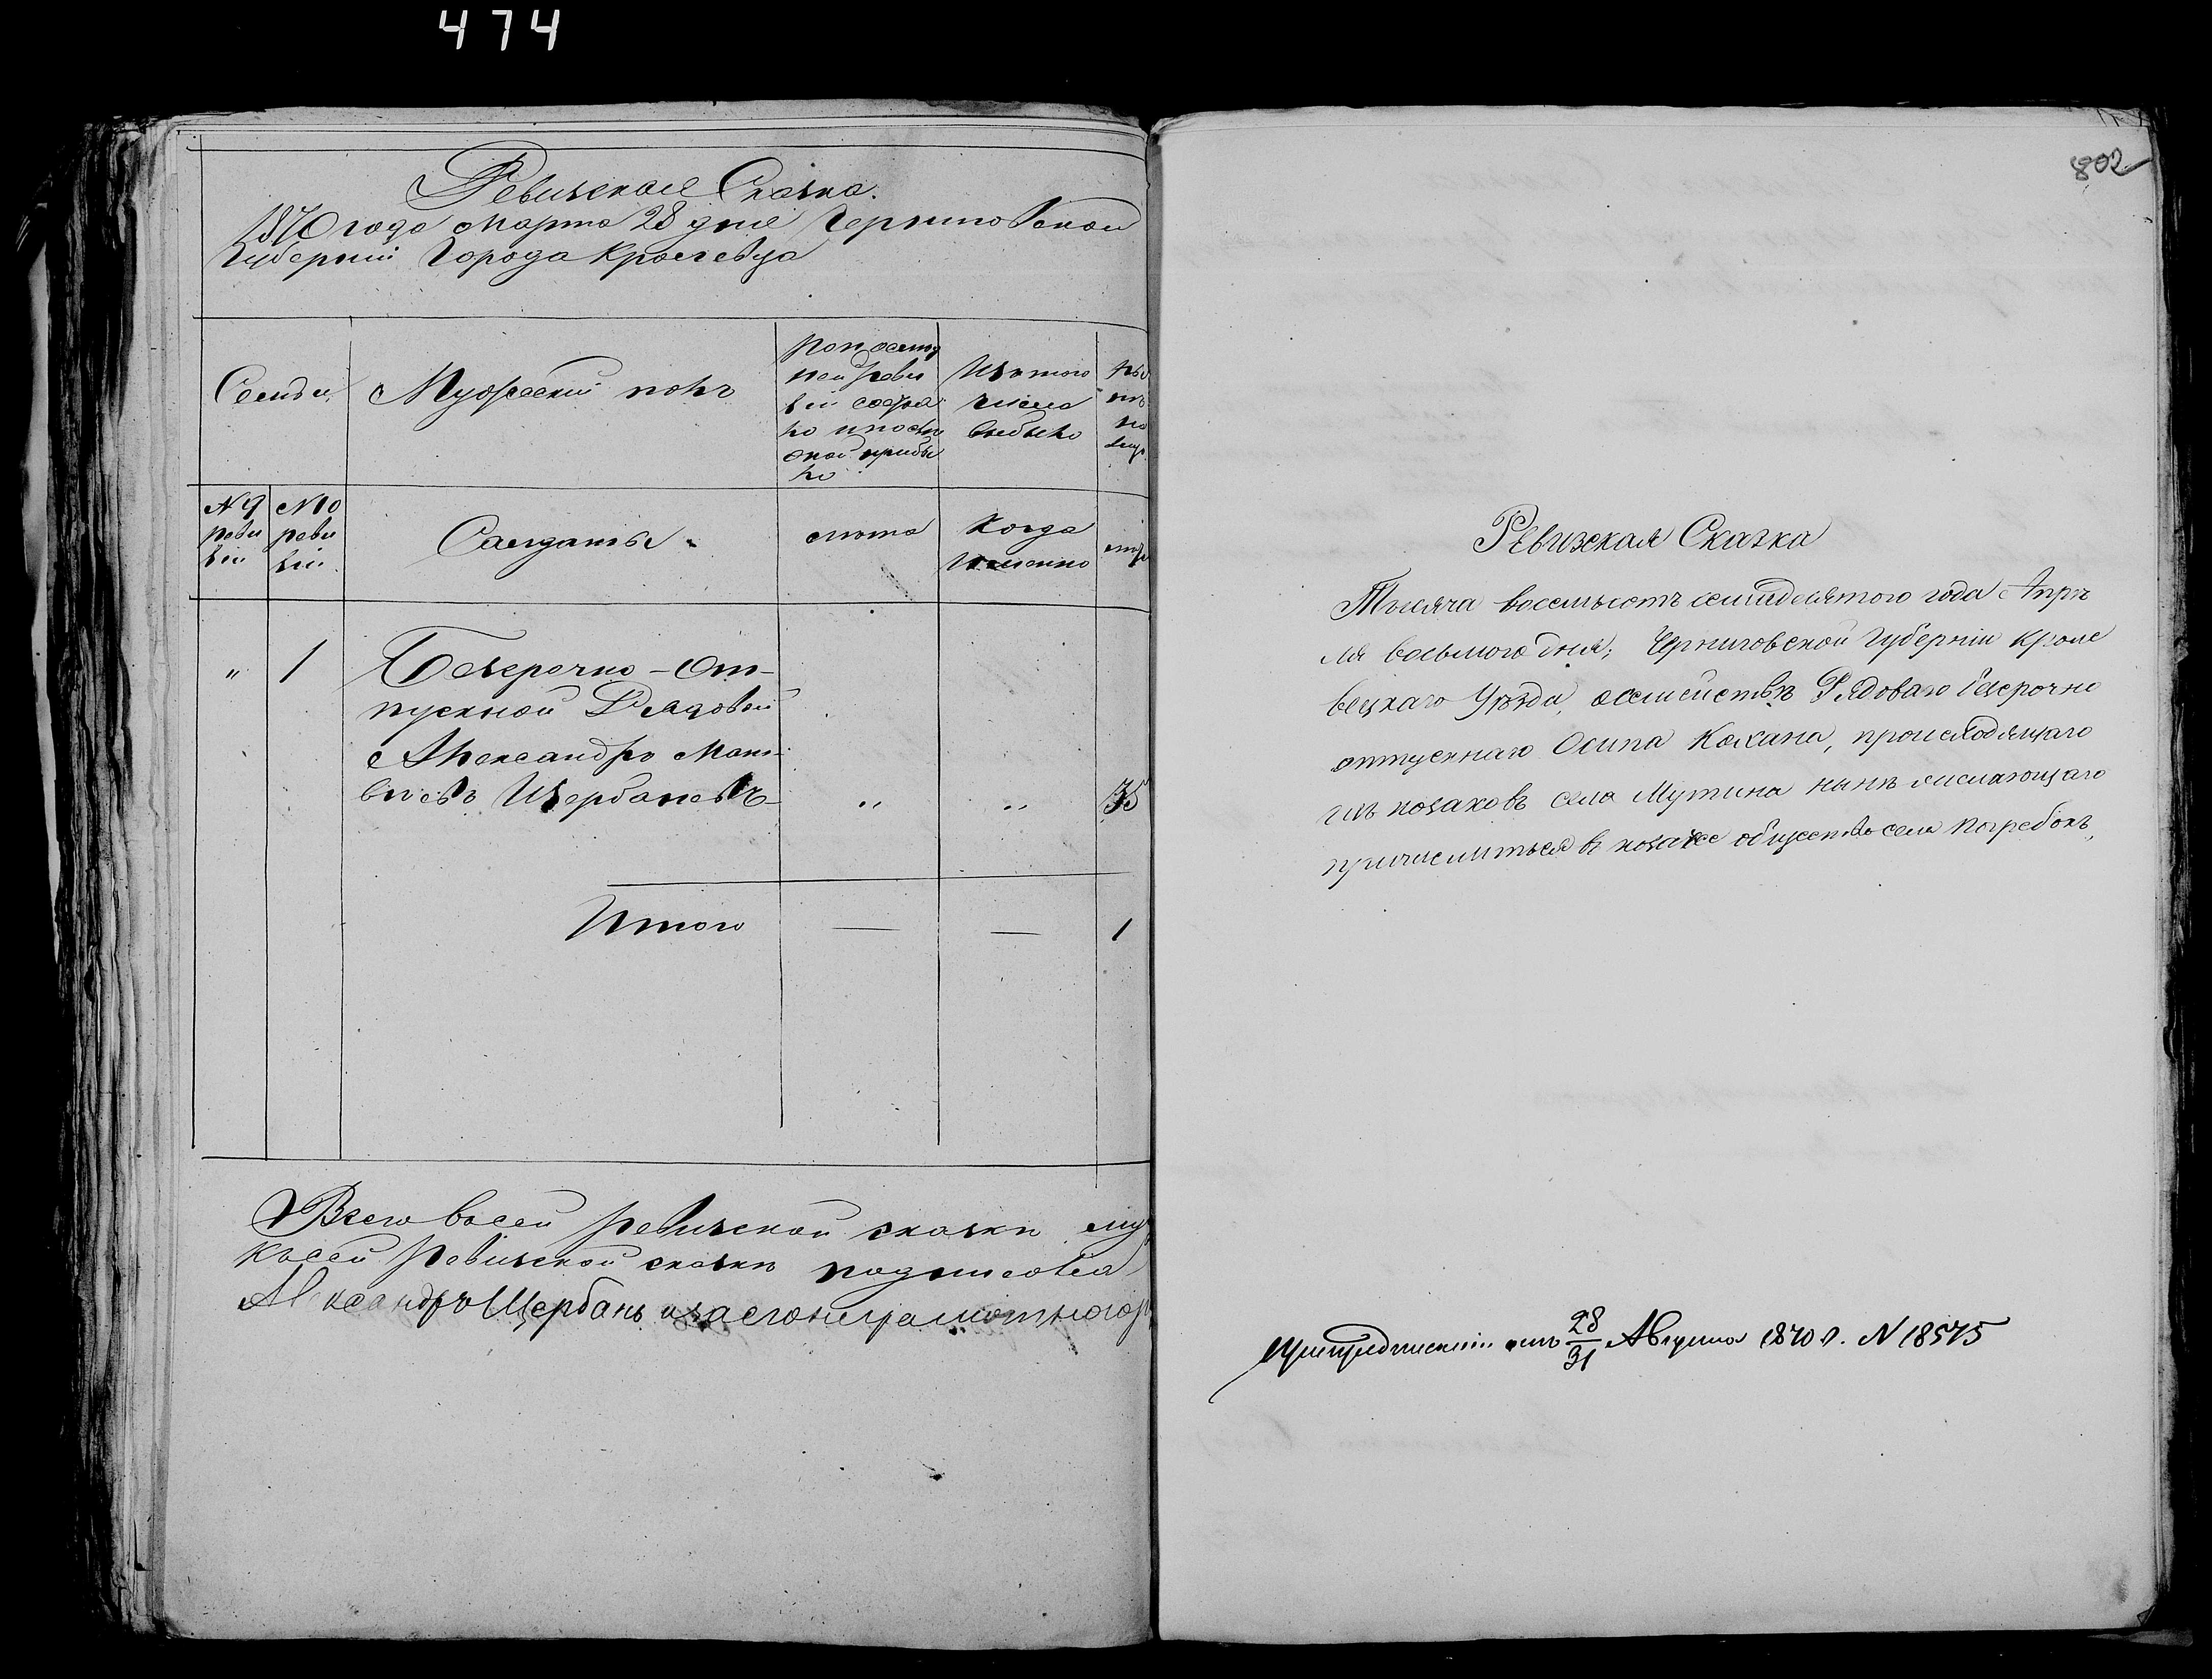 474
Ревизская Сказка.
1870 года Марта 28 дня Черниговской
Губерніи Города Кролевца
Семьи
Мужескій полъ
По послѣд
ней реви
зіи состоя
ло и послѣ
оной прибы
ло
Изъ того
числа
выбыло
лѣ
на
лицо
№ 9 реви зіи
№ 10 реви зіи
Салдаты
лѣта
Когда
именно
"
1
Безсрочно-От-
пускной Рядовой
Александръ Мат-
вѣевъ Щербаневъ
"
"
35
Итого
—
—
1
Всего въ сей ревизской сказки му
Къ сей ревизской сказки подписовса
Александръ Щербань а за его неграмотного
802
Ревизская Сказка
Тысяча восемьсотъ семидесятого года Апрѣ
ля восьмого дня; Черниговской Губерніи Кроле
вецкаго Уѣзда, о семействѣ Рядоваго безсрочно
отпускнаго Осипа Кохана, происходящаго
изъ козаковъ села Мутина нынѣ желающаго
причислиться въ козачее общество села Погребокъ,
При предписаніи отъ 28/31 Августа 1870 г. № 18575